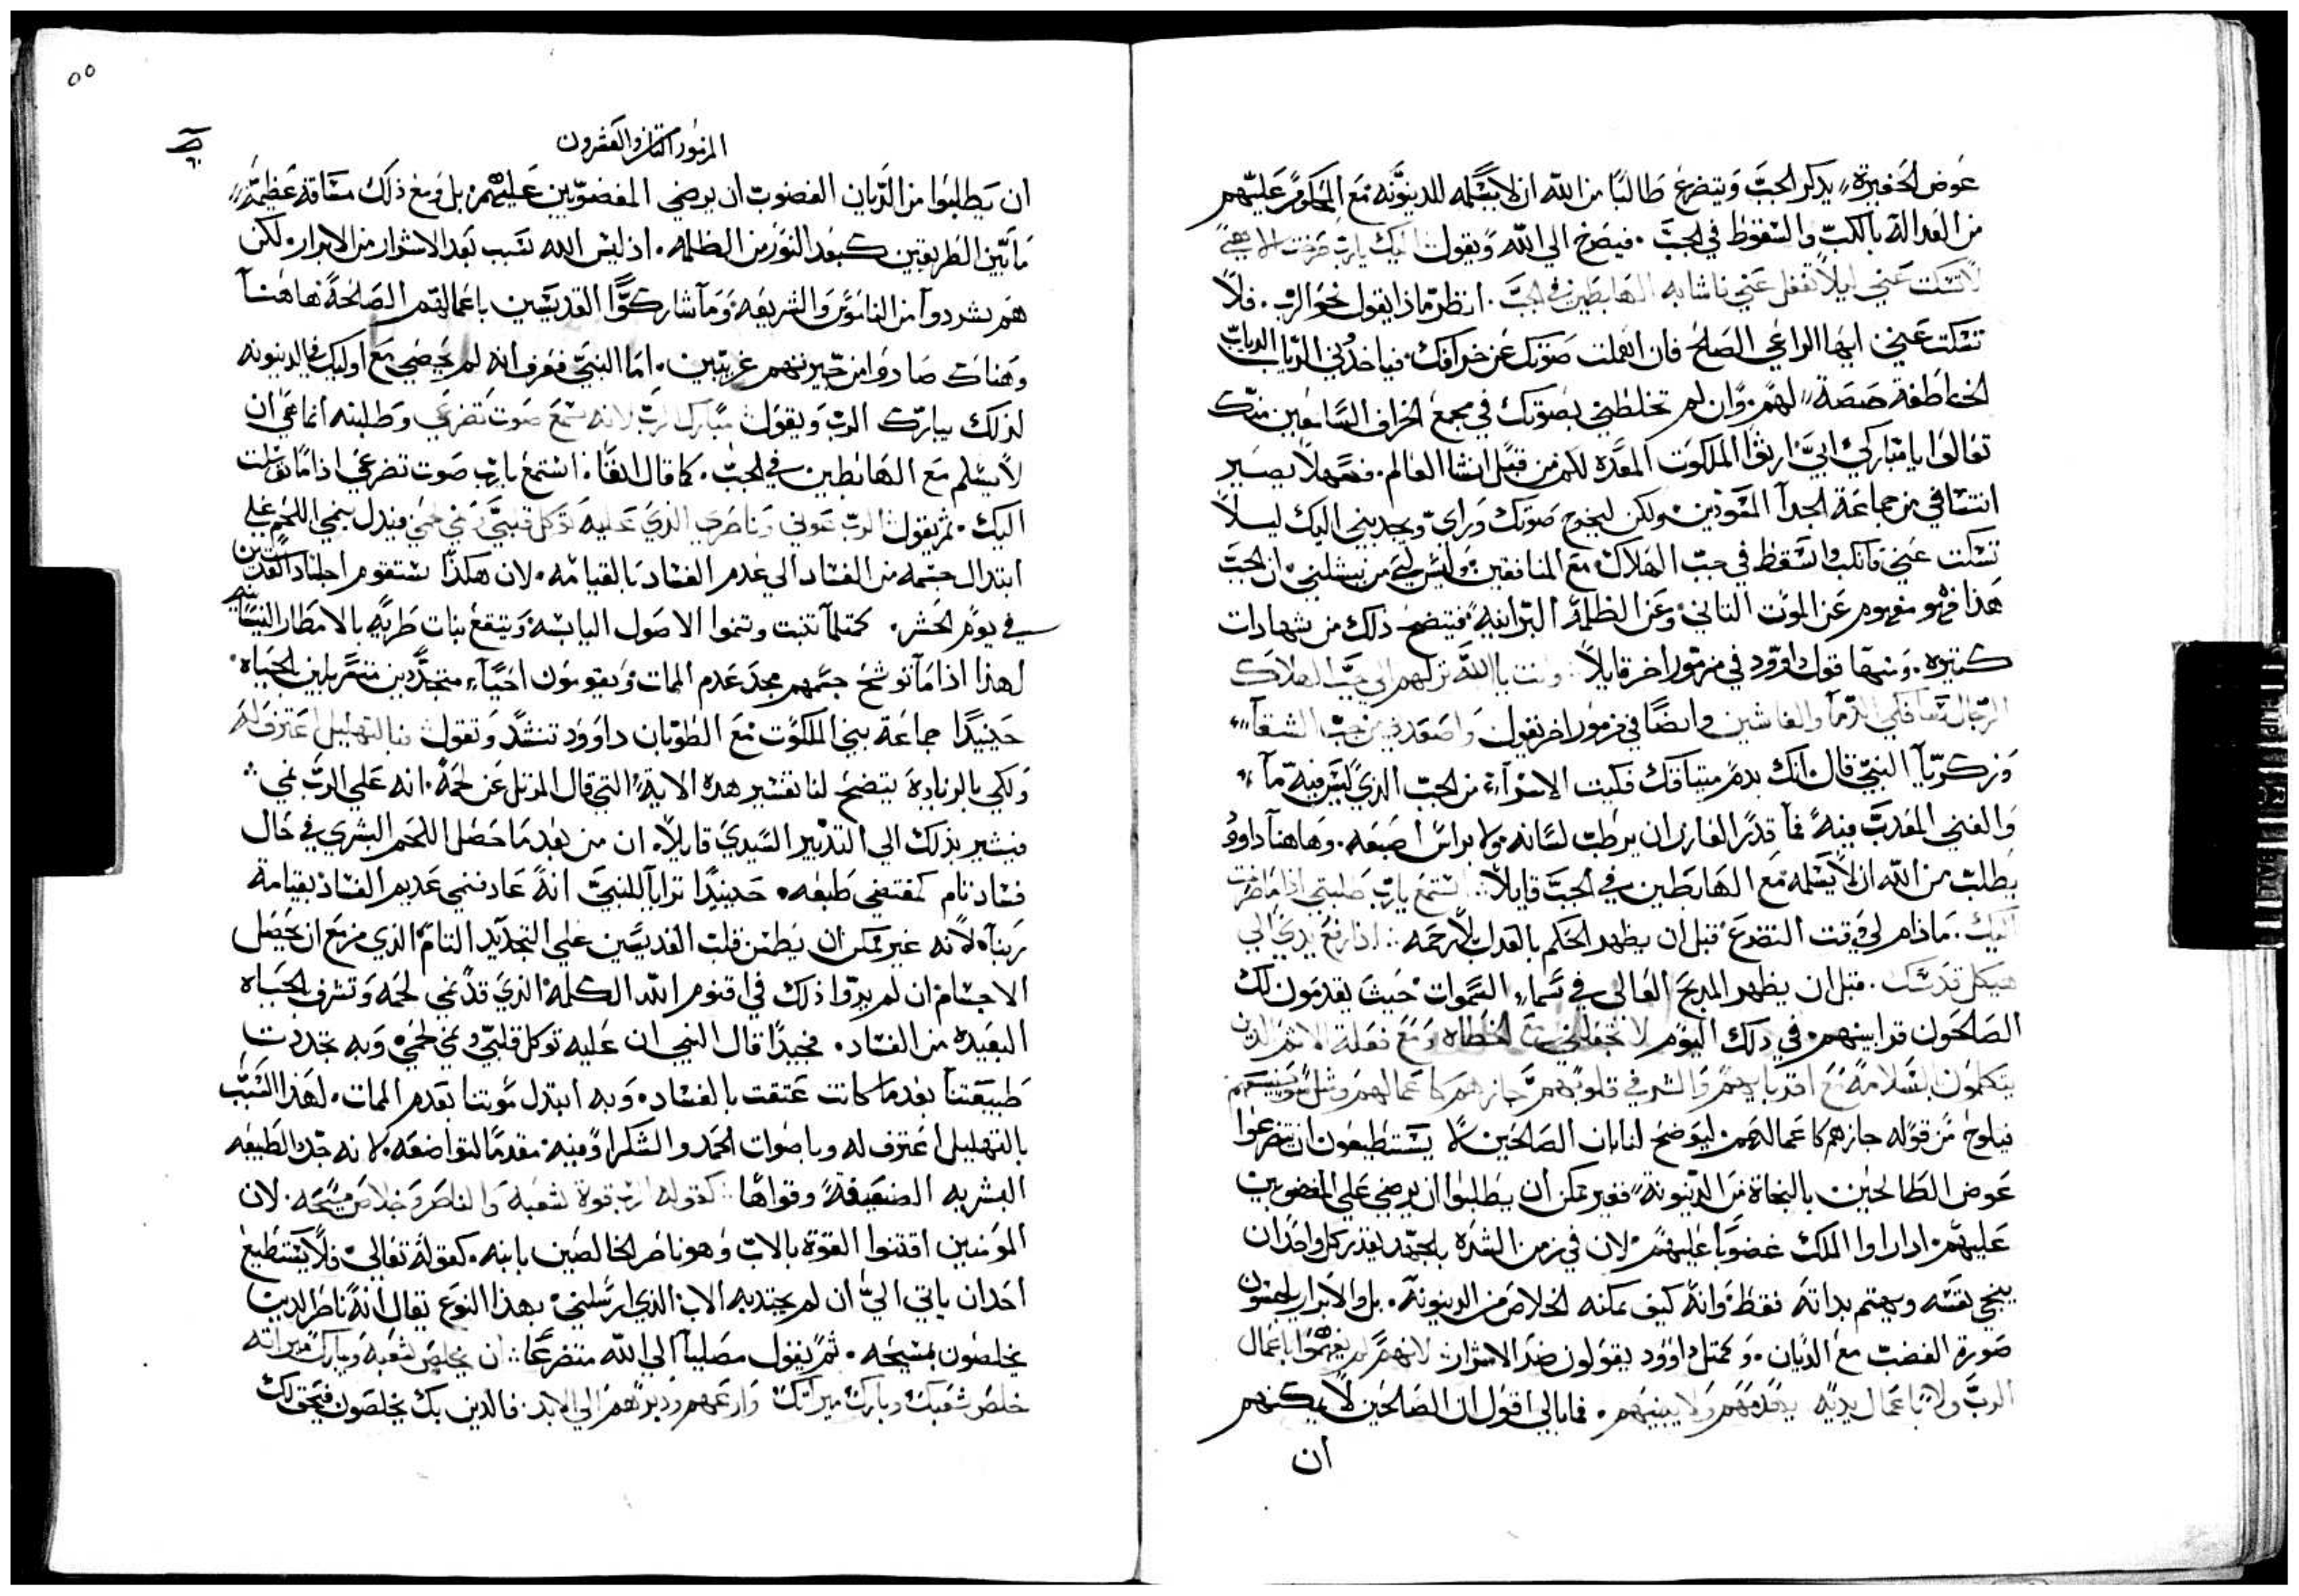 عوض الحفيرة يذكر الجب ويتضرع طالبًا من الله ان لا يسلمه للدينونه مع المحكوم عليهم
من العداله بالكب والسقوط في الجب. فيصرخ الي الله ويقول اليك يارب صرخت الاهي
لا تسكت عني ليلا تغفل عني فاشابه الهابطين في الجب. انظر ماذا يقول نحو الرب. فلا
تسكت عني ايها الراعي الصالح فان اهملت صوتك عن خرافك فياخدوني الدياب الدياب
الخاطفة لهم وان لم تخلطني بصوتك في مجمع الخراف السامعين منك
تعالوا يا مباركي ابي ارثوا الملكوت المعده لكم من قبل انشا العالم. فمهلا يصير
انتسافي من جماعة الجدآ ولكن ليخرج صوتك وراي ويجدبني اليك ليلا
تسكت عني فانكب واسقط في جب الهلاك مع المنافقين وليس لي من ينشلني ان الجب
هذا فهو مفهوم عن الموت الثاني وعن الظلمة البرانيه فيتضح ذلك من شهادات
كتيره. ومنها قول داوود في مزمور اخر قايلاً وانت يا الله تنزلهم الي جب الهلاك
الرجال سافكي الدمآ والغاشين وايضًا في مزمور اخر يقول واصعدني من جب الشقآ
وزكريآ النبي قال انك بدم ميثاقك فكيت الاسرآء من الجب الذي ليس فيه مآ
والغني المعدب فيه فمآ قدر العازر ان يرطب لسانه ولا براس اصبعه. وهاهنآ داوود
يطلب من الله ان لا يسلمه مع الهابطين في الجب قايلاً استمع يارب طلبتي اذا ما صرخت
اليك. مادام لي وقت التضرع قبل ان يظهر الحكم بالعدل بلا رحمه اذا رفع يدي الي
هيكل قدسك. قبل ان يظهر المديح العالي في سماء السموات حيث يقدمون لك
الصالحون قرابينهم في دلك اليوم لا تجعلني مع الخطاه ومع فعلة الاثم الدين
يتكلمون بالسلامة مع اقربايهم والشر في قلوبهم جازهم كاعمالهم ومثل
فيلوح من قوله جازهم كاعمالهم ليوضح لنا بان الصالحين لا يستطيعون ان يتضرعوا
عوض الطالحين بالنجاة من الدينونة فغير ممكن ان يطلبوا ان يرضي علي المغضوبين
عليهم ادا راوا الملك غضوبًا عليهم لان في زمن الشده بالجهد يقدر كل واحد ان
ينجي نفسه ويهتم بداته فقط وانه كيف يمكنه الخلاص من الدينونة. بل والابرار يلبسون
صورة الغضب مع الديان. وكمثل داوود يقولون ضد الاشرار لانهم لم يفهموا باعمال
الرب ولا باعمال يديه يهدمهم ولا يبنيهم. فما بالي اقول ان الصالحين لا يمكنهم
ان
٥٥
المزمور السابع والعشرون
ان يطلبوا من الديان الغضوب ان يرضي المغضوبين عليهم بل ومع ذلك مسافة عظيمة
ما بين الطريقين كبعد النور من الظلمه. اذ ليس الله بسبب بعد الاشرار من الابرار لكن
هم شردوآ من الناموس والشريعه ومآ شاركوا القديسين باعمالهم الصالحة هاهنآ
وهناك صاروا من خيرتهم غريبين. اما النبي فعرف انه لم يحصي مع اوليك في الدينونه
لذلك يبارك الرب ويقول مبارك الرب لانه سمع صوت تضرعي وطلبته انما هي ان
لا يسلم مع الهابطين في الجب. كما قال انفًا استمع يارب صوت تضرعي اذا ما توسلت
اليك. ثم يقول الرب عوني وناصري الذي عليه توكل قلبي ونمي لحمي فيدل بنمي اللحم علي
ابتدال جسمه من الفساد الي عدم الفساد بالقيامه. لان هكذا ستقوم اجساد القديسين
في يوم الحشر. كمتلمآ تنبت وتنموا الاصول اليابسة ويتقع نبات طريه بالامطار النيسانيه
لهذا اذا مآ توشح جسمهم مجد عدم الممات ويقومون احيآء متجددين متسربلين الحياه
حينيدًا جماعة بني الملكوت مع الطوبان داوود تنشد وتقول فبالتهليل اعترف له
ولكي بالزيادة يتضح لنا تفسير هده الاية التي قال المرتل عن لحمه انه علي الرب نمي
فيشير بذلك الي التدبير السيدي قايلاً ان من بعد ما حصل اللحم البشري في حال
فساد تام كمقتضي طبعه. حينيدًا ترايآ للنبي انه عاد فنمي عديم الفساد بقيامة
ربنآ لانه غير ممكن ان يطمن قلب القديسين علي التجديد التام الذي مزمع ان يحصل
الاجسام ان لم يروا ذلك في اقنوم الله الكلمة الذي قد نمي لحمه وتشرف بالحياه
البعيده من الفساد. فجيدًا قال النبي ان عليه توكل قلبي ونمي لحمي وبه تجددت
طبيعتنآ بعدما كانت عتقت بالفساد. وبه ابتدل موتنا بعدم الممات. لهذا السبب
بالتهليل اعترف له وباصوات الحمد والشكر اوفيه مقدمًا لتواضعه. لانه جدد الطبيعه
البشريه الضعيفة وقواها كقوله الرب قوة لشعبه والناصر وخلاص مسيحه. لان
المومنين اقتنوا القوة بالاب وهو ناصر الخالصين بابنه. كقوله تعالي فلا يستطيع
احد ان ياتي الي ان لم يجتدبه الاب الذي ارسلني بهذا النوع يقال انه ناصر الدين
يخلصون بمسيحه. ثم يقول مصليآ الي الله متضرعًا ان يخلص شعبه ويبارك ميراثه
خلص شعبك وبارك ميراتك وارعهم ودبرهم الي الابد. فالذين بك يخلصون فيحق لك